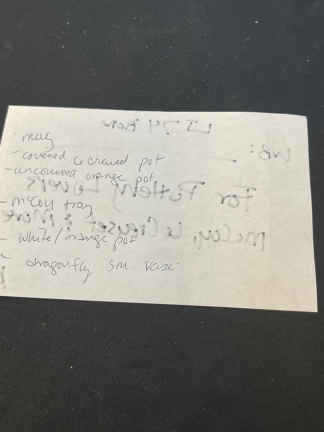 mug
- covered Le creuset pot
- uncovered orange pot
- McCoy tray
- white/orange pot
- dragonfly sm vase
For Pottery Lovers
McCoy, Le Creuset & More